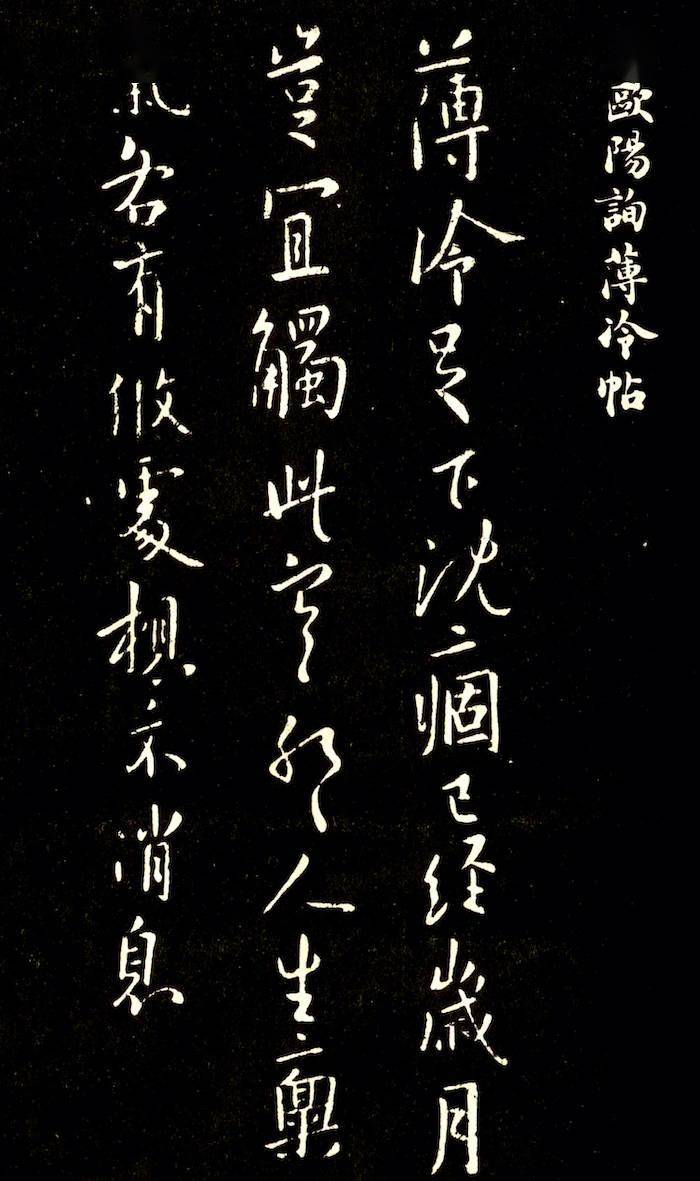 歐陽詢薄冷帖
薄冷足下沈痼已経歲月
豈宜觸此寒耶人生稟
氣各有攸處想示消息